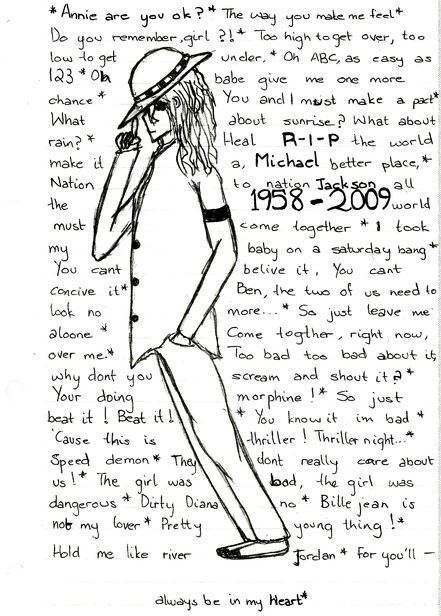 *Annie are you ok?* The way you make me feel*
Do you remember, girl ?!* Too high to get over, too
low to get under.* Oh ABC, as easy as
123* Oh babe give me one more
chance* You and I must make a pact*
What about sunrise? What about
rain?* Heal R-I-P the world
make it a, Michael better place,*
Nation to nation Jackson all
the 1958-2009 world
must come together * I took
my baby on a saturday bang*
You cant belive it, You cant
concive it* Ben, the two of us need to
look no more...* So just leave me
aloone* Come togther, right now,
over me.* Too bad too bad about it,
why dont you scream and shout it?*
Your doing morphine!* So just
beat it! Beat it!* * You know it im bad *
'Cause this is thriller! Thriller night...*
Speed demon* They dont really care about
us!* The girl was bad, the girl was
dangerous* Dirty Diana no* Bille jean is
not my lover* Pretty young thing!*
Hold me like river Jordan* For you'll -
always be in my Heart*